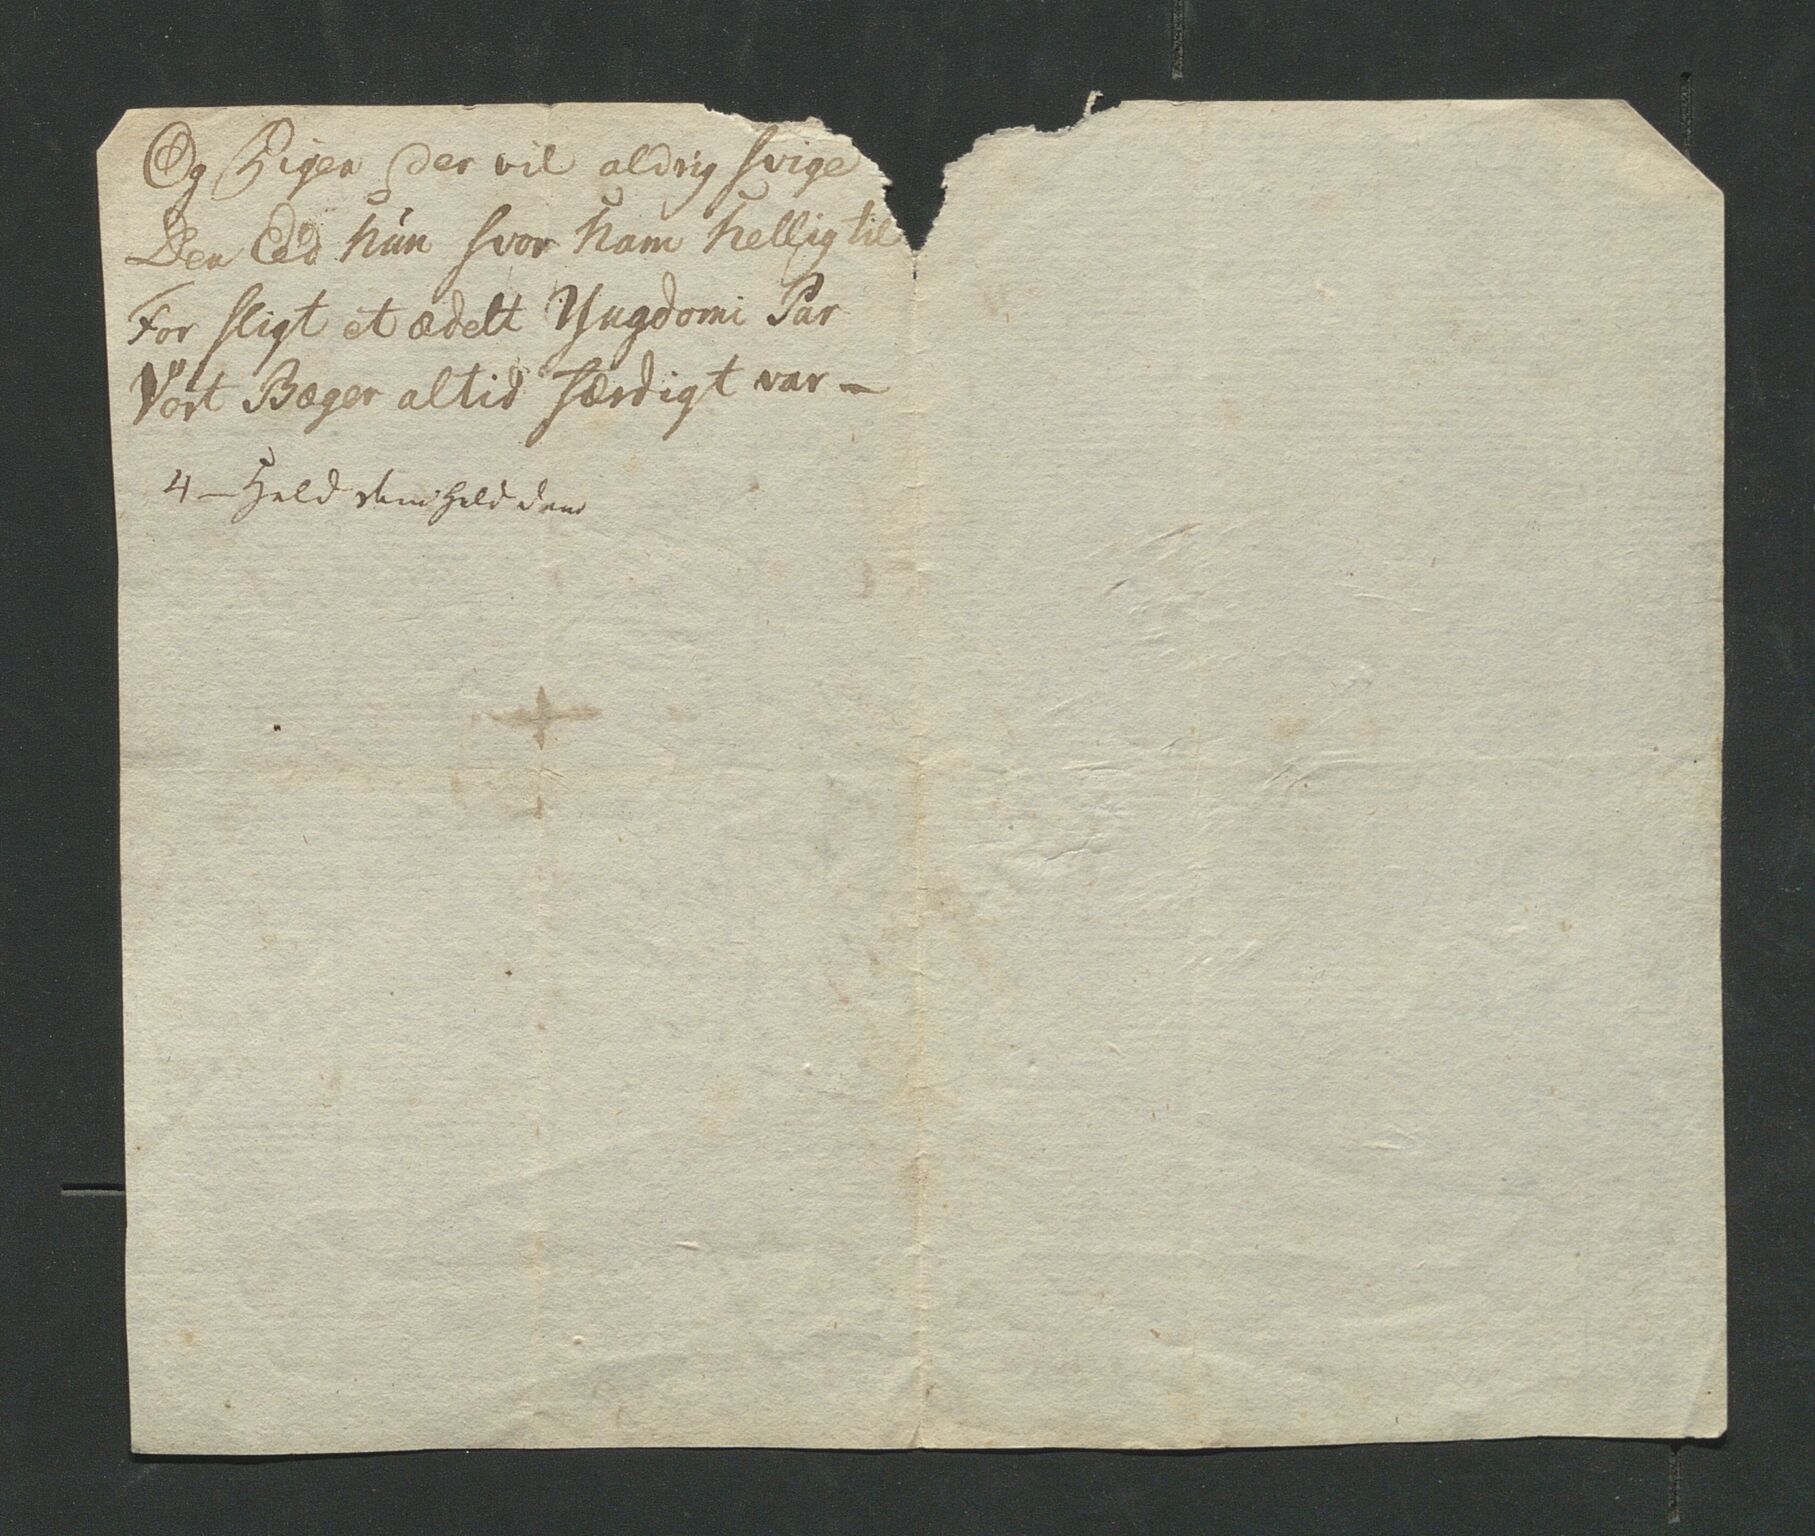 Og Pigen der vil aldrig svige
Den Eed hun svor ham hellig til
For sligt et ædelt Yngdoms Par
Vort Bæger altid færdigt var —
4 — Held dem held dem